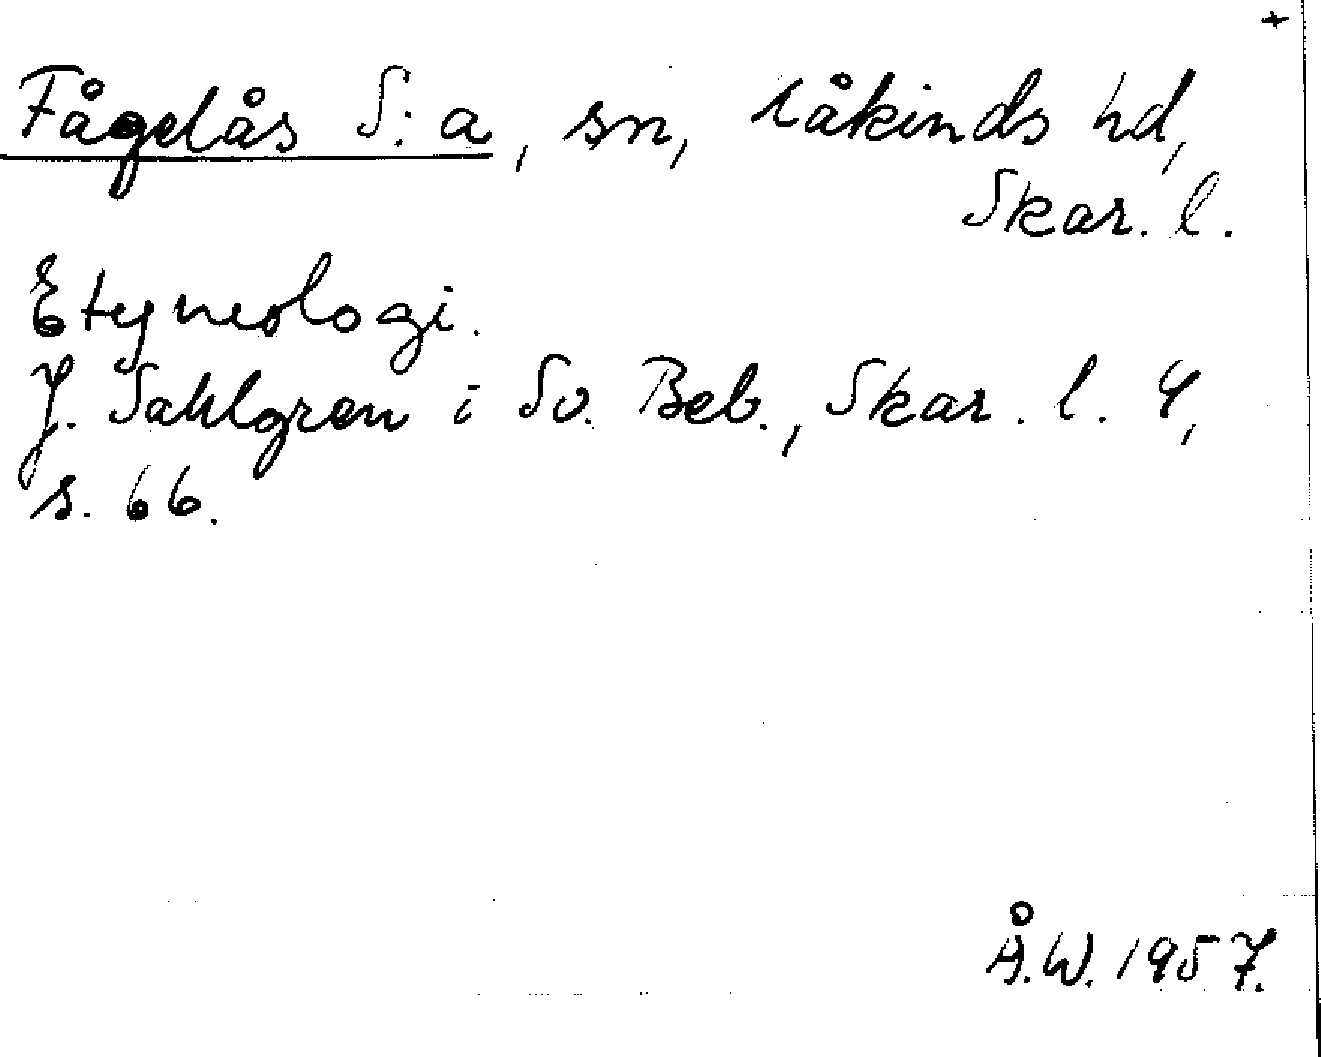 +
Fågelås S:a, sn, Kåkinds hd,
Skar. l.
Etymologi.
J. Sahlgren i Sv. Beb., Skar. l. 4,
s. 66.
Å.W. 1957.